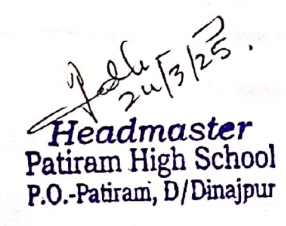 24/3/25.
Headmaster
Patiram High School
P.O.-Patiram, D/Dinajpur